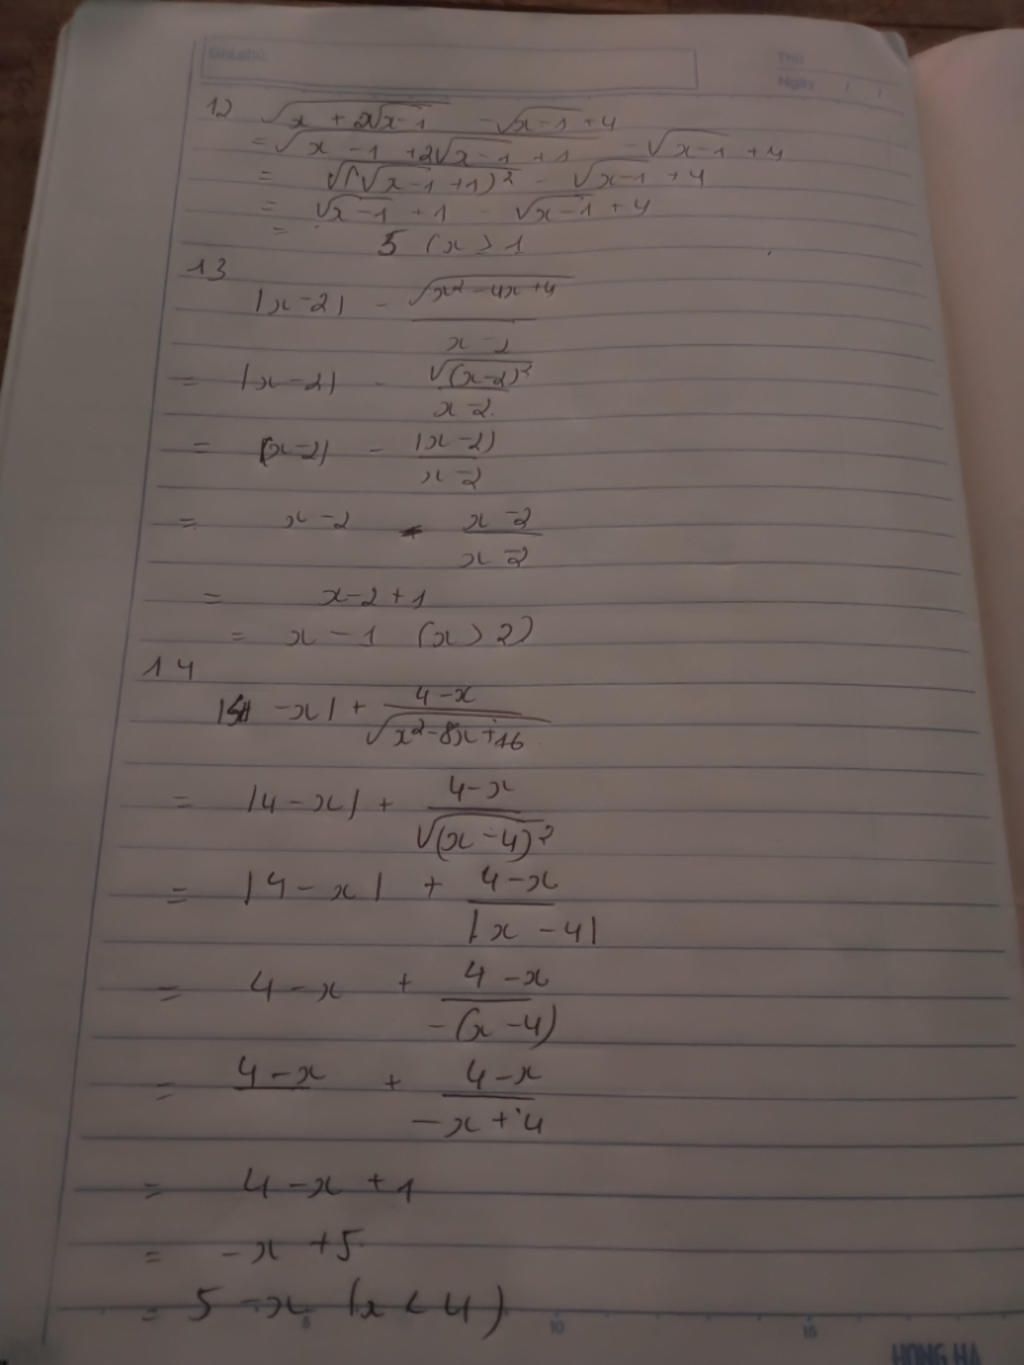 Thứ
Ngày / /
12 √(x + 2√(x-1)) - √(x-1) + 4
= √(x - 1 + 2√(x-1) + 1) - √(x-1) + 4
= √((√(x-1) + 1)²) - √(x-1) + 4
= √(x-1) + 1 - √(x-1) + 4
= 5 (x > 1
13
|x-2| - √(x²-4x+4)/(x-2)
= |x-2| - √((x-2)²)/(x-2)
= |x-2| - |x-2|/(x-2)
= x-2 - (x-2)/(x-2)
= x-2+1
= x-1 (x > 2)
14
|4-x| + (4-x)/√(x²-8x+16)
= |4-x| + (4-x)/√((x-4)²)
= |4-x| + (4-x)/|x-4|
= 4-x + (4-x)/(-(x-4))
= 4-x + (4-x)/(-x+4)
= 4-x+1
= -x+5
= 5-x (x < 4)
5 10 15
HONG HA